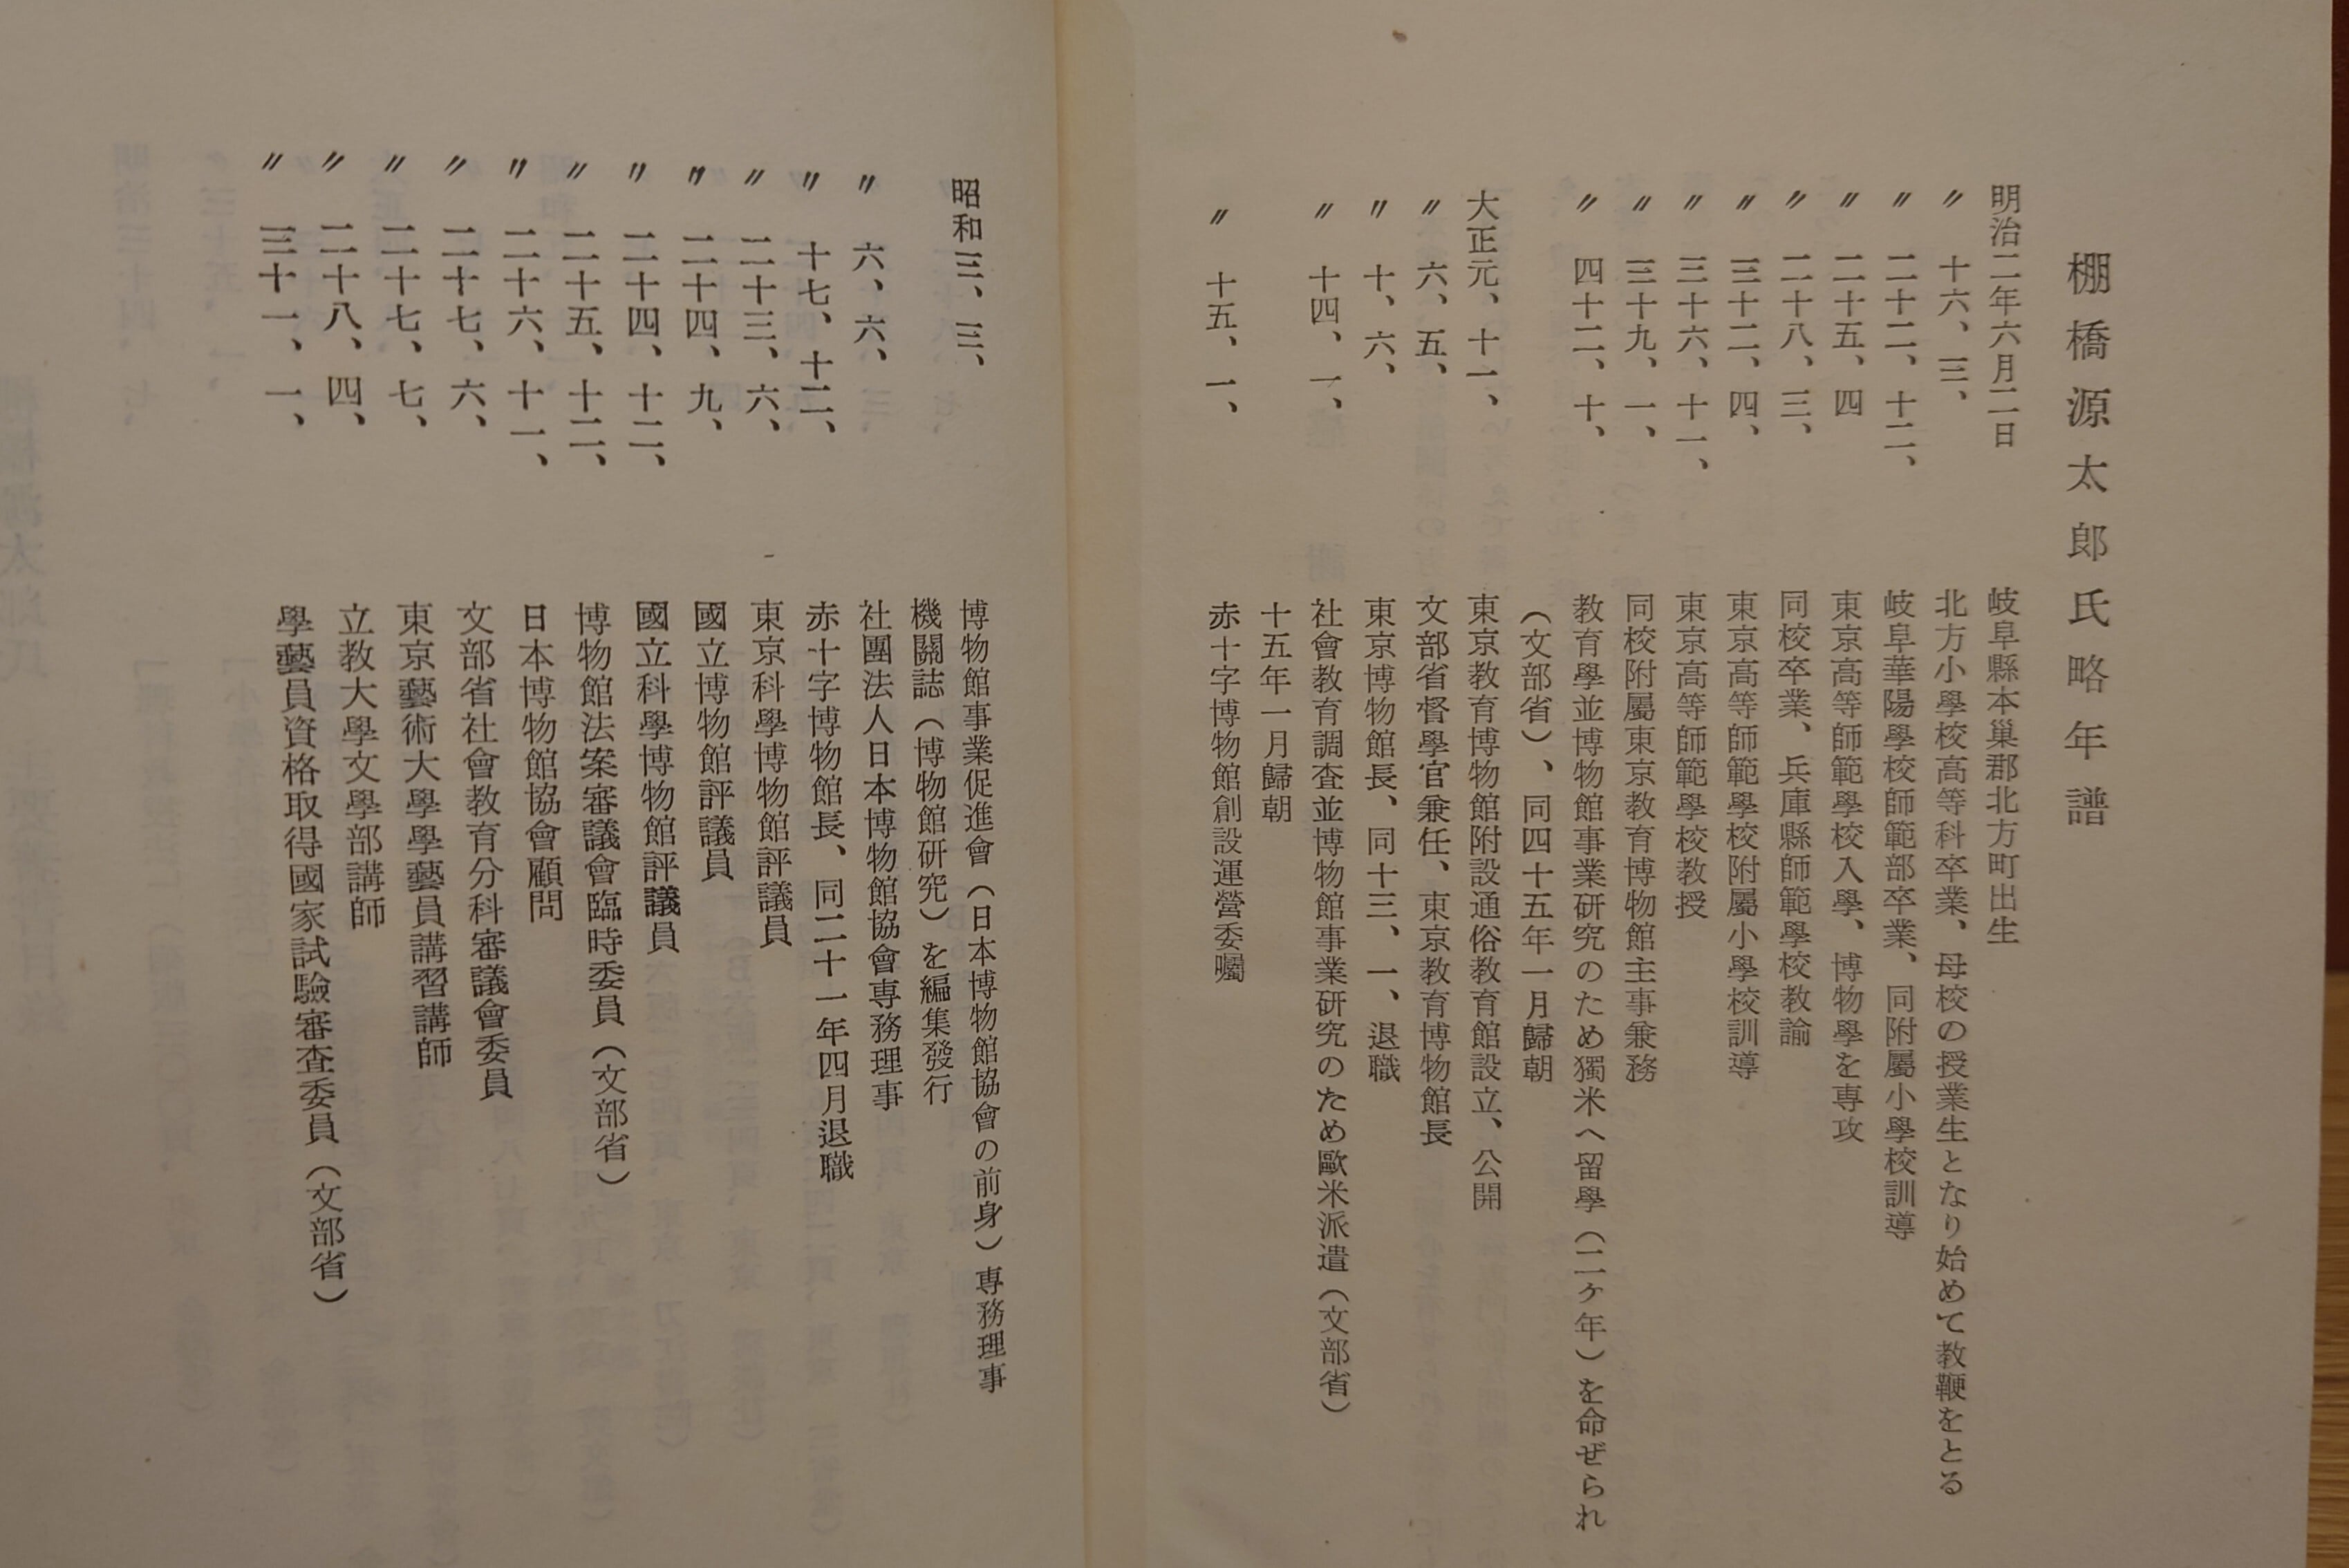 棚橋源太郎氏略年譜
明治二年六月二日 岐阜縣本巣郡北方町出生
〃 十六、三、 北方小學校高等科卒業、母校の授業生となり始めて教鞭をとる
〃 二十二、十二、 岐阜華陽學校師範部卒業、同附屬小學校訓導
〃 二十五、四 東京高等師範學校入學、博物學を専攻
〃 二十八、三、 同校卒業、兵庫縣師範學校教諭
〃 三十二、四、 東京高等師範學校附屬小學校訓導
〃 三十六、十一、 東京高等師範學校教授
〃 三十九、一、 同校附屬東京教育博物館主事兼務
〃 四十二、十、 教育學並博物館事業研究のため獨米へ留學（二ケ年）を命ぜられ
（文部省）、同四十五年一月歸朝
大正元、十一、 東京教育博物館附設通俗教育館設立、公開
〃 六、五、 文部省督學官兼任、東京教育博物館長
〃 十、六、 東京博物館長、同十三、一、退職
〃 十四、一、 社會教育調査並博物館事業研究のため歐米派遣（文部省）
十五年一月歸朝
〃 十五、一、 赤十字博物館創設運營委囑
昭和三、三、 博物館事業促進會（日本博物館協會の前身）専務理事
機關誌（博物館研究）を編集發行
〃 六、六、 社團法人日本博物館協會専務理事
〃 十七、十二、 赤十字博物館長、同二十一年四月退職
〃 二十三、六、 東京科學博物館評議員
〃 二十四、九、 國立博物館評議員
〃 二十四、十二、 國立科學博物館評議員
〃 二十五、十二、 博物館法案審議會臨時委員（文部省）
〃 二十六、十一、 日本博物館協會顧問
〃 二十七、六、 文部省社會教育分科審議會委員
〃 二十七、七、 東京藝術大學學藝員講習講師
〃 二十八、四、 立教大學文學部講師
〃 三十一、一、 學藝員資格取得國家試驗審査委員（文部省）